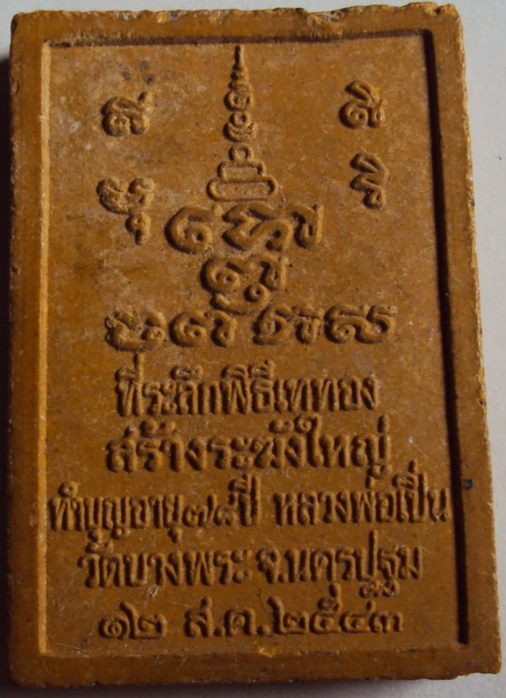 ที่ระลึกพิธีเททอง
สร้างระฆังใหญ่
ทำบุญอายุ๗๘ปี หลวงพ่อเปิ่น
วัดบางพระ จ.นครปฐม
๑๒ ส.ค.๒๕๔๓